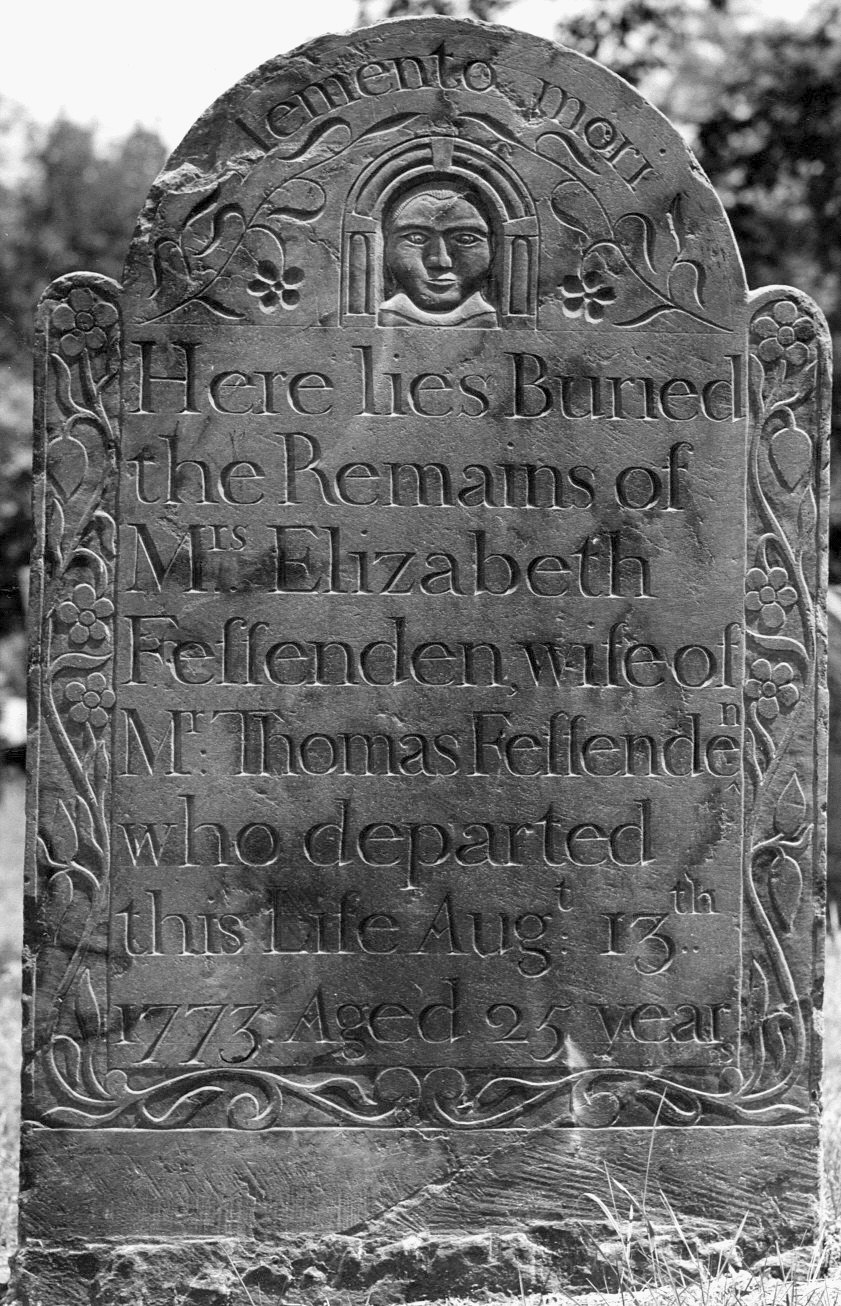 Memento mori
Here lies Buried
the Remains of
Mrs. Elizabeth
Feſſenden, wife of
Mr. Thomas Feſſenden
who departed
this Life Augt. 13th.
1773. Aged 25 years